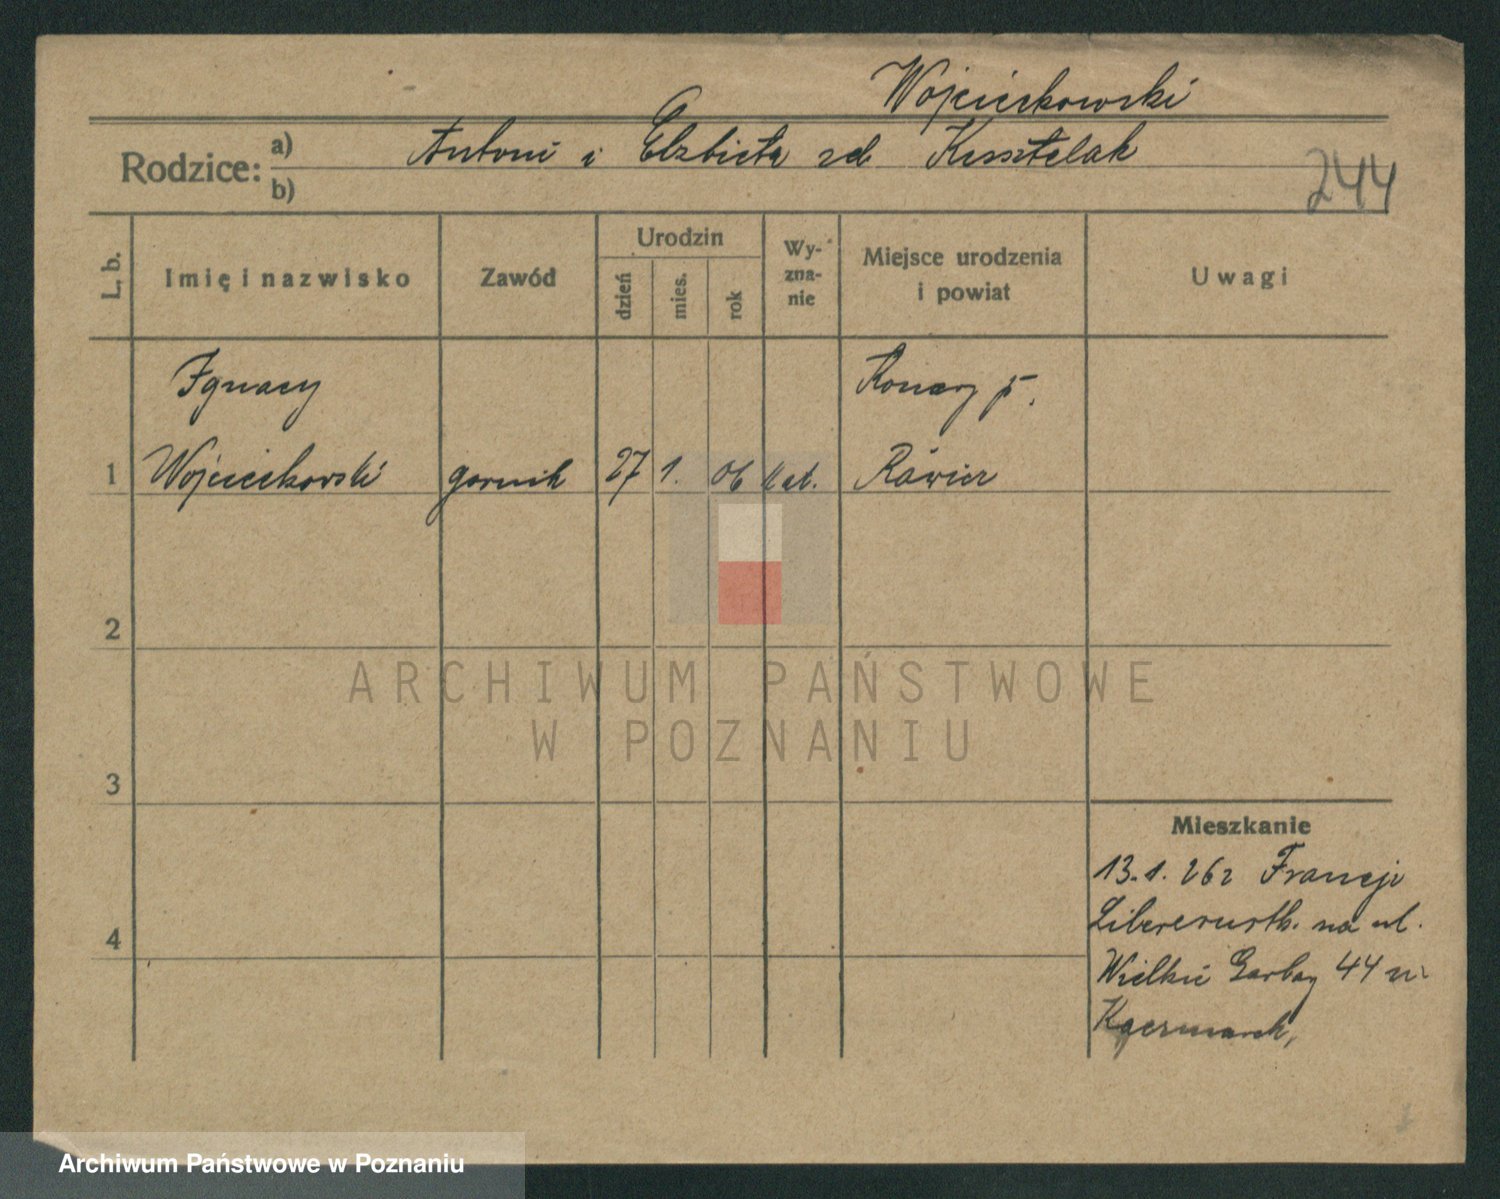 Wojciechowski
Rodzice: a) Antoni i Elżbieta zd.
b)
244
L. b.
Imię i nazwisko
Zawód
Urodzin
dzień
mies.
rok
Wy-
zna-
nie
Miejsce urodzenia
i powiat
Uwagi
Ignacy
Konary p.
1 Wojciechowski gornik 27 1. 06 kat. Rawicz
2
3
4
Mieszkanie
13.1. 26 z Francji
na ul.
Wielkie Garbary 44 u
Kaczmarek,
ARCHIWUM PAŃSTWOWE
W POZNANIU
Archiwum Państwowe w Poznaniu